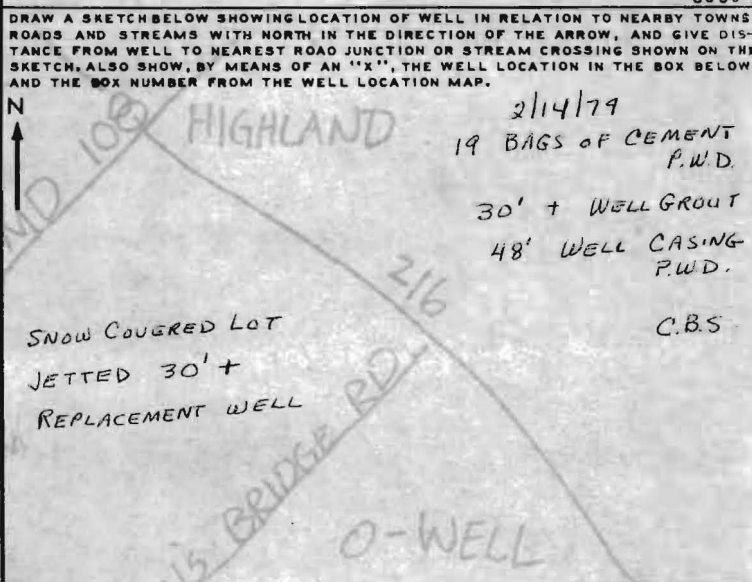 DRAW A SKETCH BELOW SHOWING LOCATION OF WELL IN RELATION TO NEARBY TOWNS
ROADS AND STREAMS WITH NORTH IN THE DIRECTION OF THE ARROW, AND GIVE DIS-
TANCE FROM WELL TO NEAREST ROAD JUNCTION OR STREAM CROSSING SHOWN ON THE
SKETCH. ALSO SHOW, BY MEANS OF AN "X", THE WELL LOCATION IN THE BOX BELOW
AND THE BOX NUMBER FROM THE WELL LOCATION MAP.
N
2/14/79
HIGHLAND
19 BAGS OF CEMENT
P.W.D.
MD 108
30' + WELL GROUT
48' WELL CASING
P.W.D.
216
C.B.S
SNOW COVERED LOT
JETTED 30' +
REPLACEMENT WELL
BRIDGE RD
O-WELL